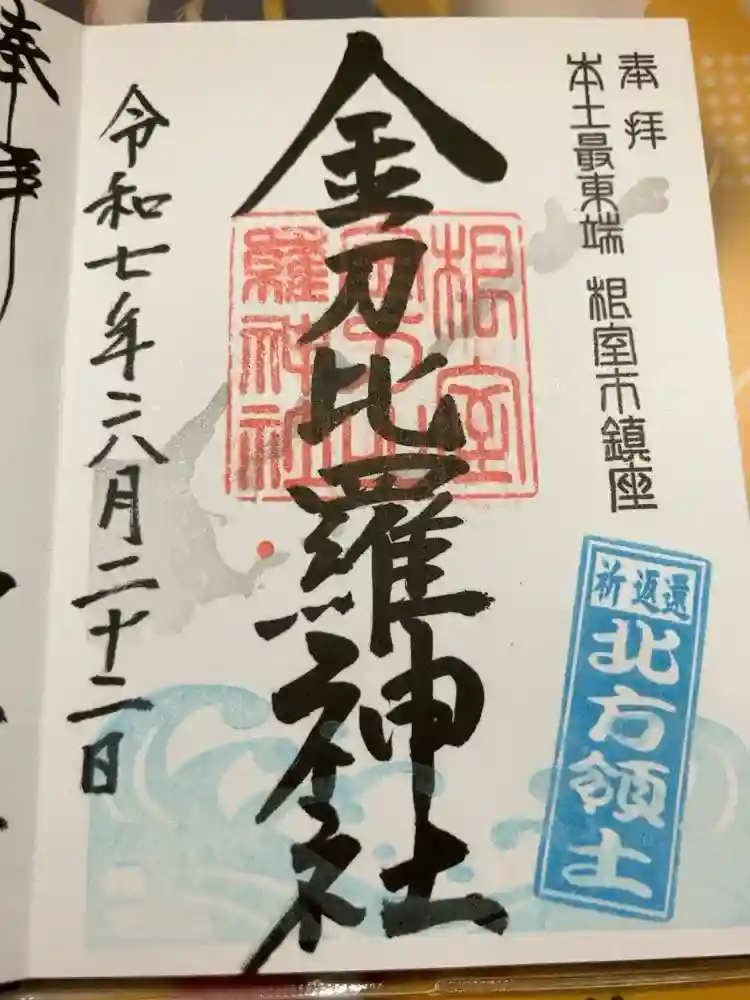 奉拝
本土最東端 根室市鎮座
祈返還
北方領土
金刀比羅神社
根室
金刀比
羅神社
令和七年八月二十二日
奉拝